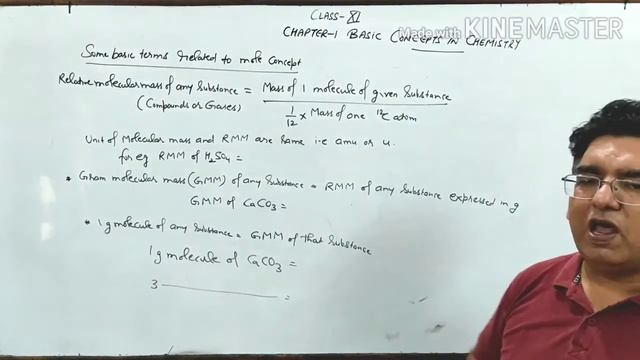 CLASS-XI
CHAPTER-1 BASIC CONCEPTS IN CHEMISTRY
Made with KINEMASTER
Some basic terms related to mole concept
Relative molecular mass of any substance = Mass of 1 molecule of given substance
(Compounds or Gases) 1/12 × Mass of one ¹²C atom
Unit of Molecular mass and RMM are same i.e amu or u.
for eg RMM of H₂SO₄ =
* Gram molecular mass (GMM) of any substance = RMM of any substance expressed in g
GMM of CaCO₃ =
* 1 g molecule of any substance = GMM of that substance
1 g molecule of CaCO₃ =
3 ——— =